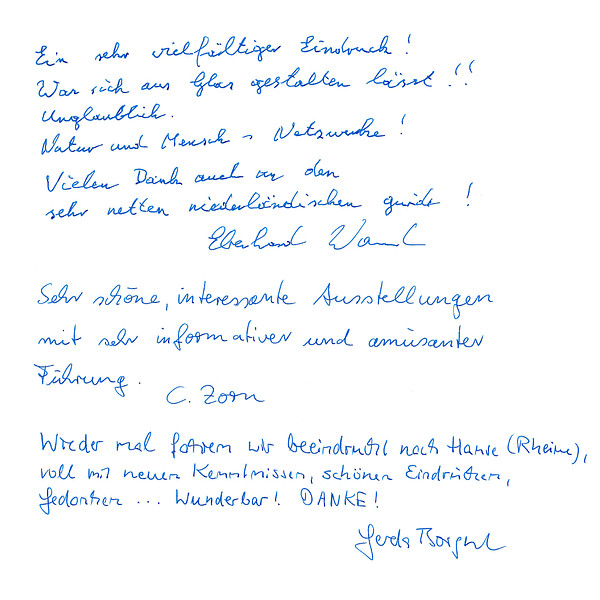 Ein sehr vielfältiger Eindruck!
Was sich aus Glas gestalten lässt!!
Unglaublich.
Natur und Mensch - Netzwerke!
Vielen Dank auch an den
sehr netten niederländischen guide!
Eberhard
Sehr schöne, interessante Ausstellungen
mit sehr informativer und amüsanter
Führung.
C. Zorn
Wieder mal fahren wir beeindruckt nach Hause (Rheine),
voll mit neuen Kenntnissen, schönen Eindrücken,
Gedanken ... Wunderbar! DANKE!
Gerda